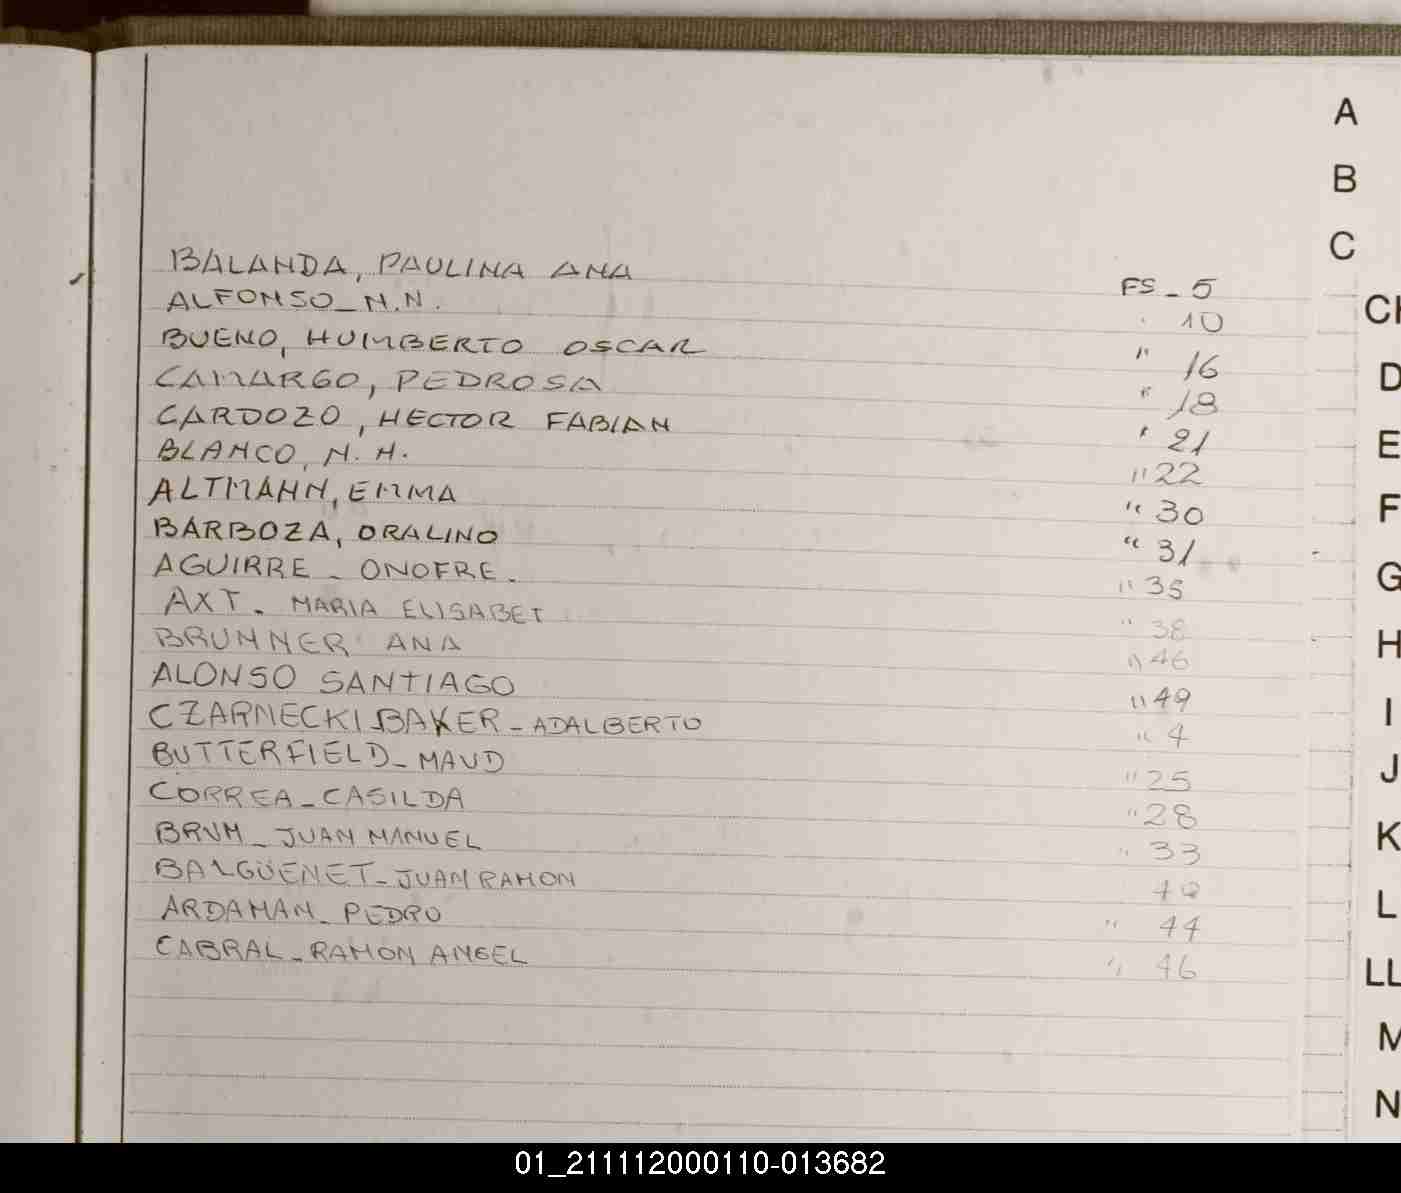 BALANDA, PAULINA ANA FS - 5
ALFONSO - N.N. 10
BUENO, HUMBERTO OSCAR " 16
CAMARGO, PEDROSA " 18
CARDOZO, HECTOR FABIAN " 21
BLANCO, N. N. " 22
ALTMANN, EMMA " 30
BARBOZA, ORALINO " 31
AGUIRRE - ONOFRE. " 35
AXT. MARIA ELISABET " 38
BRUNNER ANA " 46
ALONSO SANTIAGO " 49
CZARNECKI BAKER - ADALBERTO " 4
BUTTERFIELD - MAUD " 25
CORREA - CASILDA " 28
BRUM - JUAN MANUEL " 33
BALGÜENET - JUAN RAMON 40
ARDAMAN - PEDRO " 44
CABRAL - RAMON ANGEL " 46
A
B
C
CH
D
E
F
G
H
I
J
K
L
LL
M
N
01_211112000110-013682